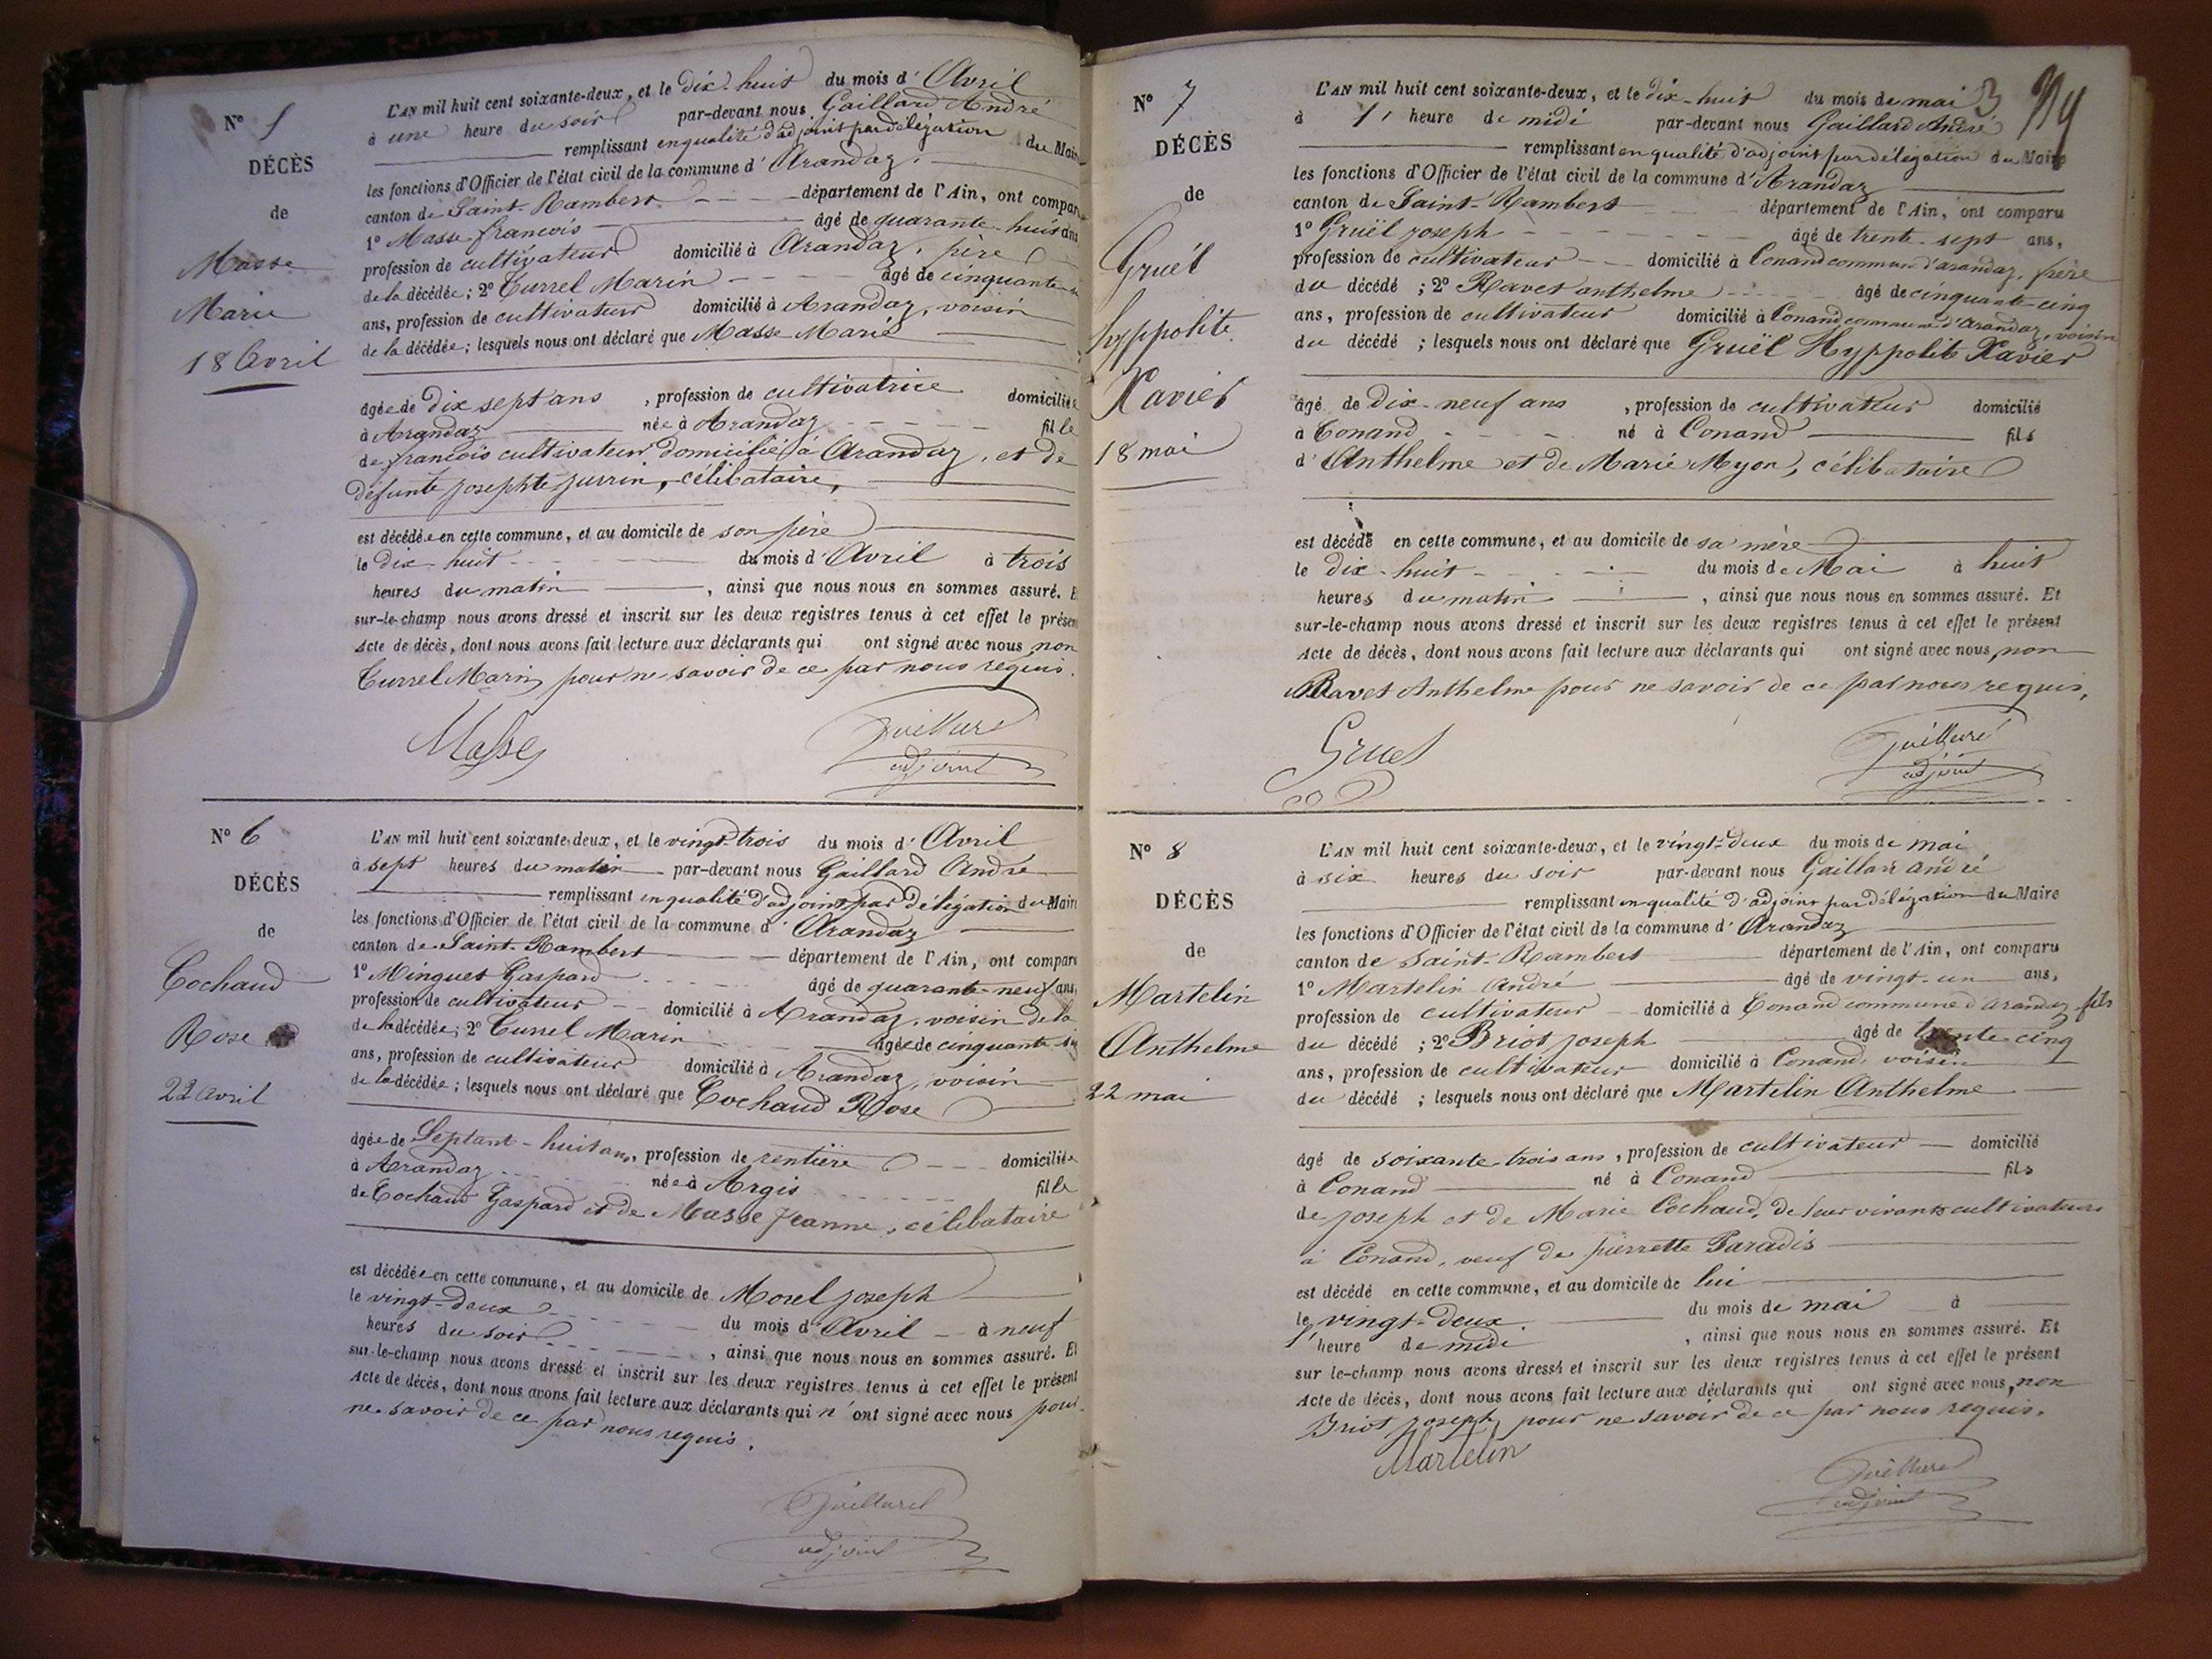 N° 5
DÉCÈS
de
Masse
Marie
18 Avril
L'AN mil huit cent soixante-deux, et le dix-huit du mois d'Avril
à une heure du soir par-devant nous Gaillard André
remplissant en qualité d'adjoint par délégation du Maire
les fonctions d'Officier de l'état civil de la commune d'Arandaz
canton de Saint-Rambert département de l'Ain, ont comparu
1° Masse françois âgé de quarante-huit ans
profession de cultivateur domicilié à Arandaz, père
de la décédée; 2° Turrel Marin âgé de cinquante
ans, profession de cultivateur domicilié à Arandaz, voisin
de la décédée; lesquels nous ont déclaré que Masse Marie
âgée de dix sept ans, profession de cultivatrice domiciliée
à Arandaz née à Arandaz fille
de françois cultivateur domicilié à Arandaz, et de
défunte josephte jurrin, célibataire,
est décédée en cette commune, et au domicile de son père
le dix-huit du mois d'Avril à trois
heures du matin, ainsi que nous nous en sommes assuré. E
sur-le-champ nous avons dressé et inscrit sur les deux registres tenus à cet effet le présen
Acte de décès, dont nous avons fait lecture aux déclarants qui ont signé avec nous non
Turrel Marin pour ne savoir de ce par nous requis.
Masse Gaillard
adjoint
N° 6
DÉCÈS
de
Cochaud
Rose
22 avril
L'AN mil huit cent soixante-deux, et le vingt-trois du mois d'Avril
à sept heures du matin par-devant nous Gaillard André
remplissant en qualité d'adjoint par délégation du Maire
les fonctions d'Officier de l'état civil de la commune d'Arandaz
canton de Saint-Rambert département de l'Ain, ont comparu
1° Minguet Gaspard âgé de quarante-neuf ans,
profession de cultivateur domicilié à Arandaz, voisin de la
de la décédée; 2° Turrel Marin âgée de cinquante six
ans, profession de cultivateur domicilié à Arandaz, voisin
de la décédée; lesquels nous ont déclaré que Cochaud Rose
âgée de Septant-huit ans, profession de rentière domiciliée
à Arandaz née à Argis fille
de Cochaud Gaspard et de Masse Jeanne, célibataire
est décédée en cette commune, et au domicile de Morel joseph
le vingt-deux du mois d'Avril à neuf
heures du soir, ainsi que nous nous en sommes assuré. Et
sur-le-champ nous avons dressé et inscrit sur les deux registres tenus à cet effet le présent
Acte de décès, dont nous avons fait lecture aux déclarants qui n'ont signé avec nous pour
ne savoir de ce par nous requis.
Gaillard
adjoint
3
N° 7
DÉCÈS
de
Gruël
hyppolite
Xavier
18 mai
L'AN mil huit cent soixante-deux, et le dix-huit du mois de mai
à 1' heure de midi par-devant nous Gaillard André
remplissant en qualité d'adjoint par délégation du Maire
les fonctions d'Officier de l'état civil de la commune d'Arandaz
canton de Saint-Rambert département de l'Ain, ont comparu
1° Gruël joseph âgé de trente-sept ans,
profession de cultivateur domicilié à Conand commune d'arandaz, frère
du décédé; 2° Ravet anthelme âgé de cinquante-cinq
ans, profession de cultivateur domicilié à Conand commune d'arandaz, voisin
du décédé; lesquels nous ont déclaré que Gruël Hyppolite Xavier
âgé de dix-neuf ans, profession de cultivateur domicilié
à Conand né à Conand fils
d'Anthelme et de Marie Myon, célibataire
est décédé en cette commune, et au domicile de sa mère
le dix-huit du mois de Mai à huit
heures du matin, ainsi que nous nous en sommes assuré. Et
sur-le-champ nous avons dressé et inscrit sur les deux registres tenus à cet effet le présent
Acte de décès, dont nous avons fait lecture aux déclarants qui ont signé avec nous, non
Ravet Anthelme pour ne savoir de ce par nous requis,
Gruel Gaillard
adjoint
N° 8
DÉCÈS
de
Martelin
Anthelme
22 mai
L'AN mil huit cent soixante-deux, et le vingt-deux du mois de mai
à six heures du soir par-devant nous Gaillard andré
remplissant en qualité d'adjoint par délégation du Maire
les fonctions d'Officier de l'état civil de la commune d'Arandaz
canton de Saint-Rambert département de l'Ain, ont comparu
1° Martelin André âgé de vingt-un ans,
profession de cultivateur domicilié à Conand commune d'arandaz fils
du décédé; 2° Briot joseph âgé de trente cinq
ans, profession de cultivateur domicilié à Conand, voisin
du décédé; lesquels nous ont déclaré que Martelin Anthelme
âgé de soixante-trois ans, profession de cultivateur domicilié
à Conand né à Conand fils
de joseph et de Marie Cochaud, de leur vivants cultivateurs
à Conand, veuf de pierrette Paradis
est décédé en cette commune, et au domicile de lui
le vingt-deux du mois de mai à
1' heure de midi, ainsi que nous nous en sommes assuré. Et
sur le-champ nous avons dressé et inscrit sur les deux registres tenus à cet effet le présent
Acte de décès, dont nous avons fait lecture aux déclarants qui ont signé avec nous, non
Briot joseph, pour ne savoir de ce par nous requis.
Martelin Gaillard
adjoint